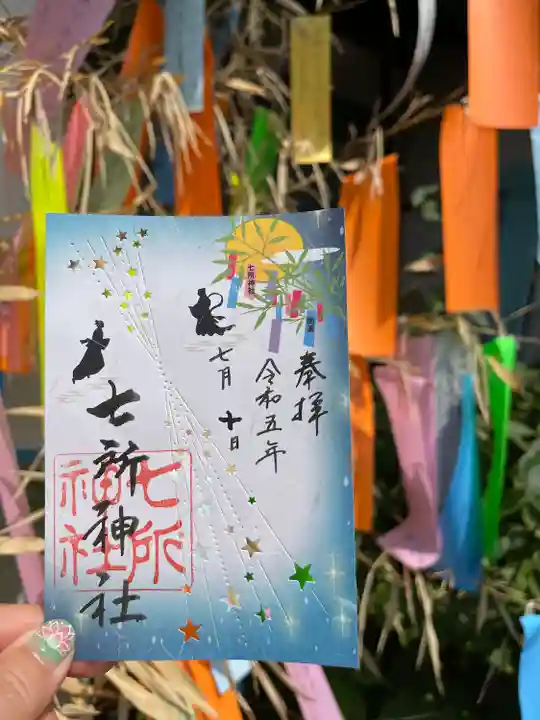 七所神社
奉拝
令和五年
七月 十日
七所神社
七所
神社